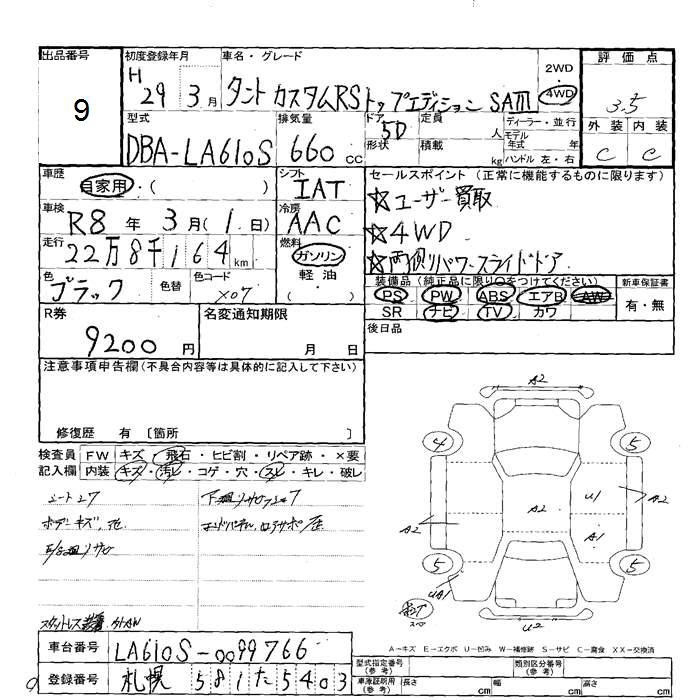 出品番号 初度登録年月 車名・グレード 2WD 評価点
9 H 29 3月 タント カスタムRS トップエディション SAⅢ 4WD 3.5
型式 排気量 ドア 5D 定員 人 ディーラー・並行 外装 内装
DBA-LA610S 660cc 形状 積載 kg モデル年式 年 ハンドル 左・右 C C
車歴 自家用・( ) シフト IAT セールスポイント(正常に機能するものに限ります)
車検 R8年 3月(1日) 冷房 AAC ☆ユーザー買取
走行 22万8千164km 燃料 ガソリン ☆4WD
軽油 ( ) ☆両側パワースライドドア
色 ブラック 色替 色コード X07 装備品(純正品に限り○をつけてください) 新車保証書
PS PW ABS エアB AW 有・無
SR ナビ TV カワ
R券 9200円 名変通知期限 月 日 後日品
注意事項申告欄(不具合内容等は具体的に記入して下さい)
修復歴 有 〔箇所 〕
検査員 FW キズ・飛石・ヒビ割・リペア跡・×要
記入欄 内装 キズ・汚レ・コゲ・穴・スレ・キレ・破レ
A2
4 5
A2 A2 U1 A2
A1
5 5
UA1
U2
車台番号 LA610S-0099766
登録番号 札幌 581 た 5403
A-キズ E-エクボ U-凹み W-補修跡 S-サビ C-腐食 XX-交換済
型式指定番号(参考) 類別区分番号(参考)
車庫証明用(参考) 長さ cm 幅 cm 高さ cm